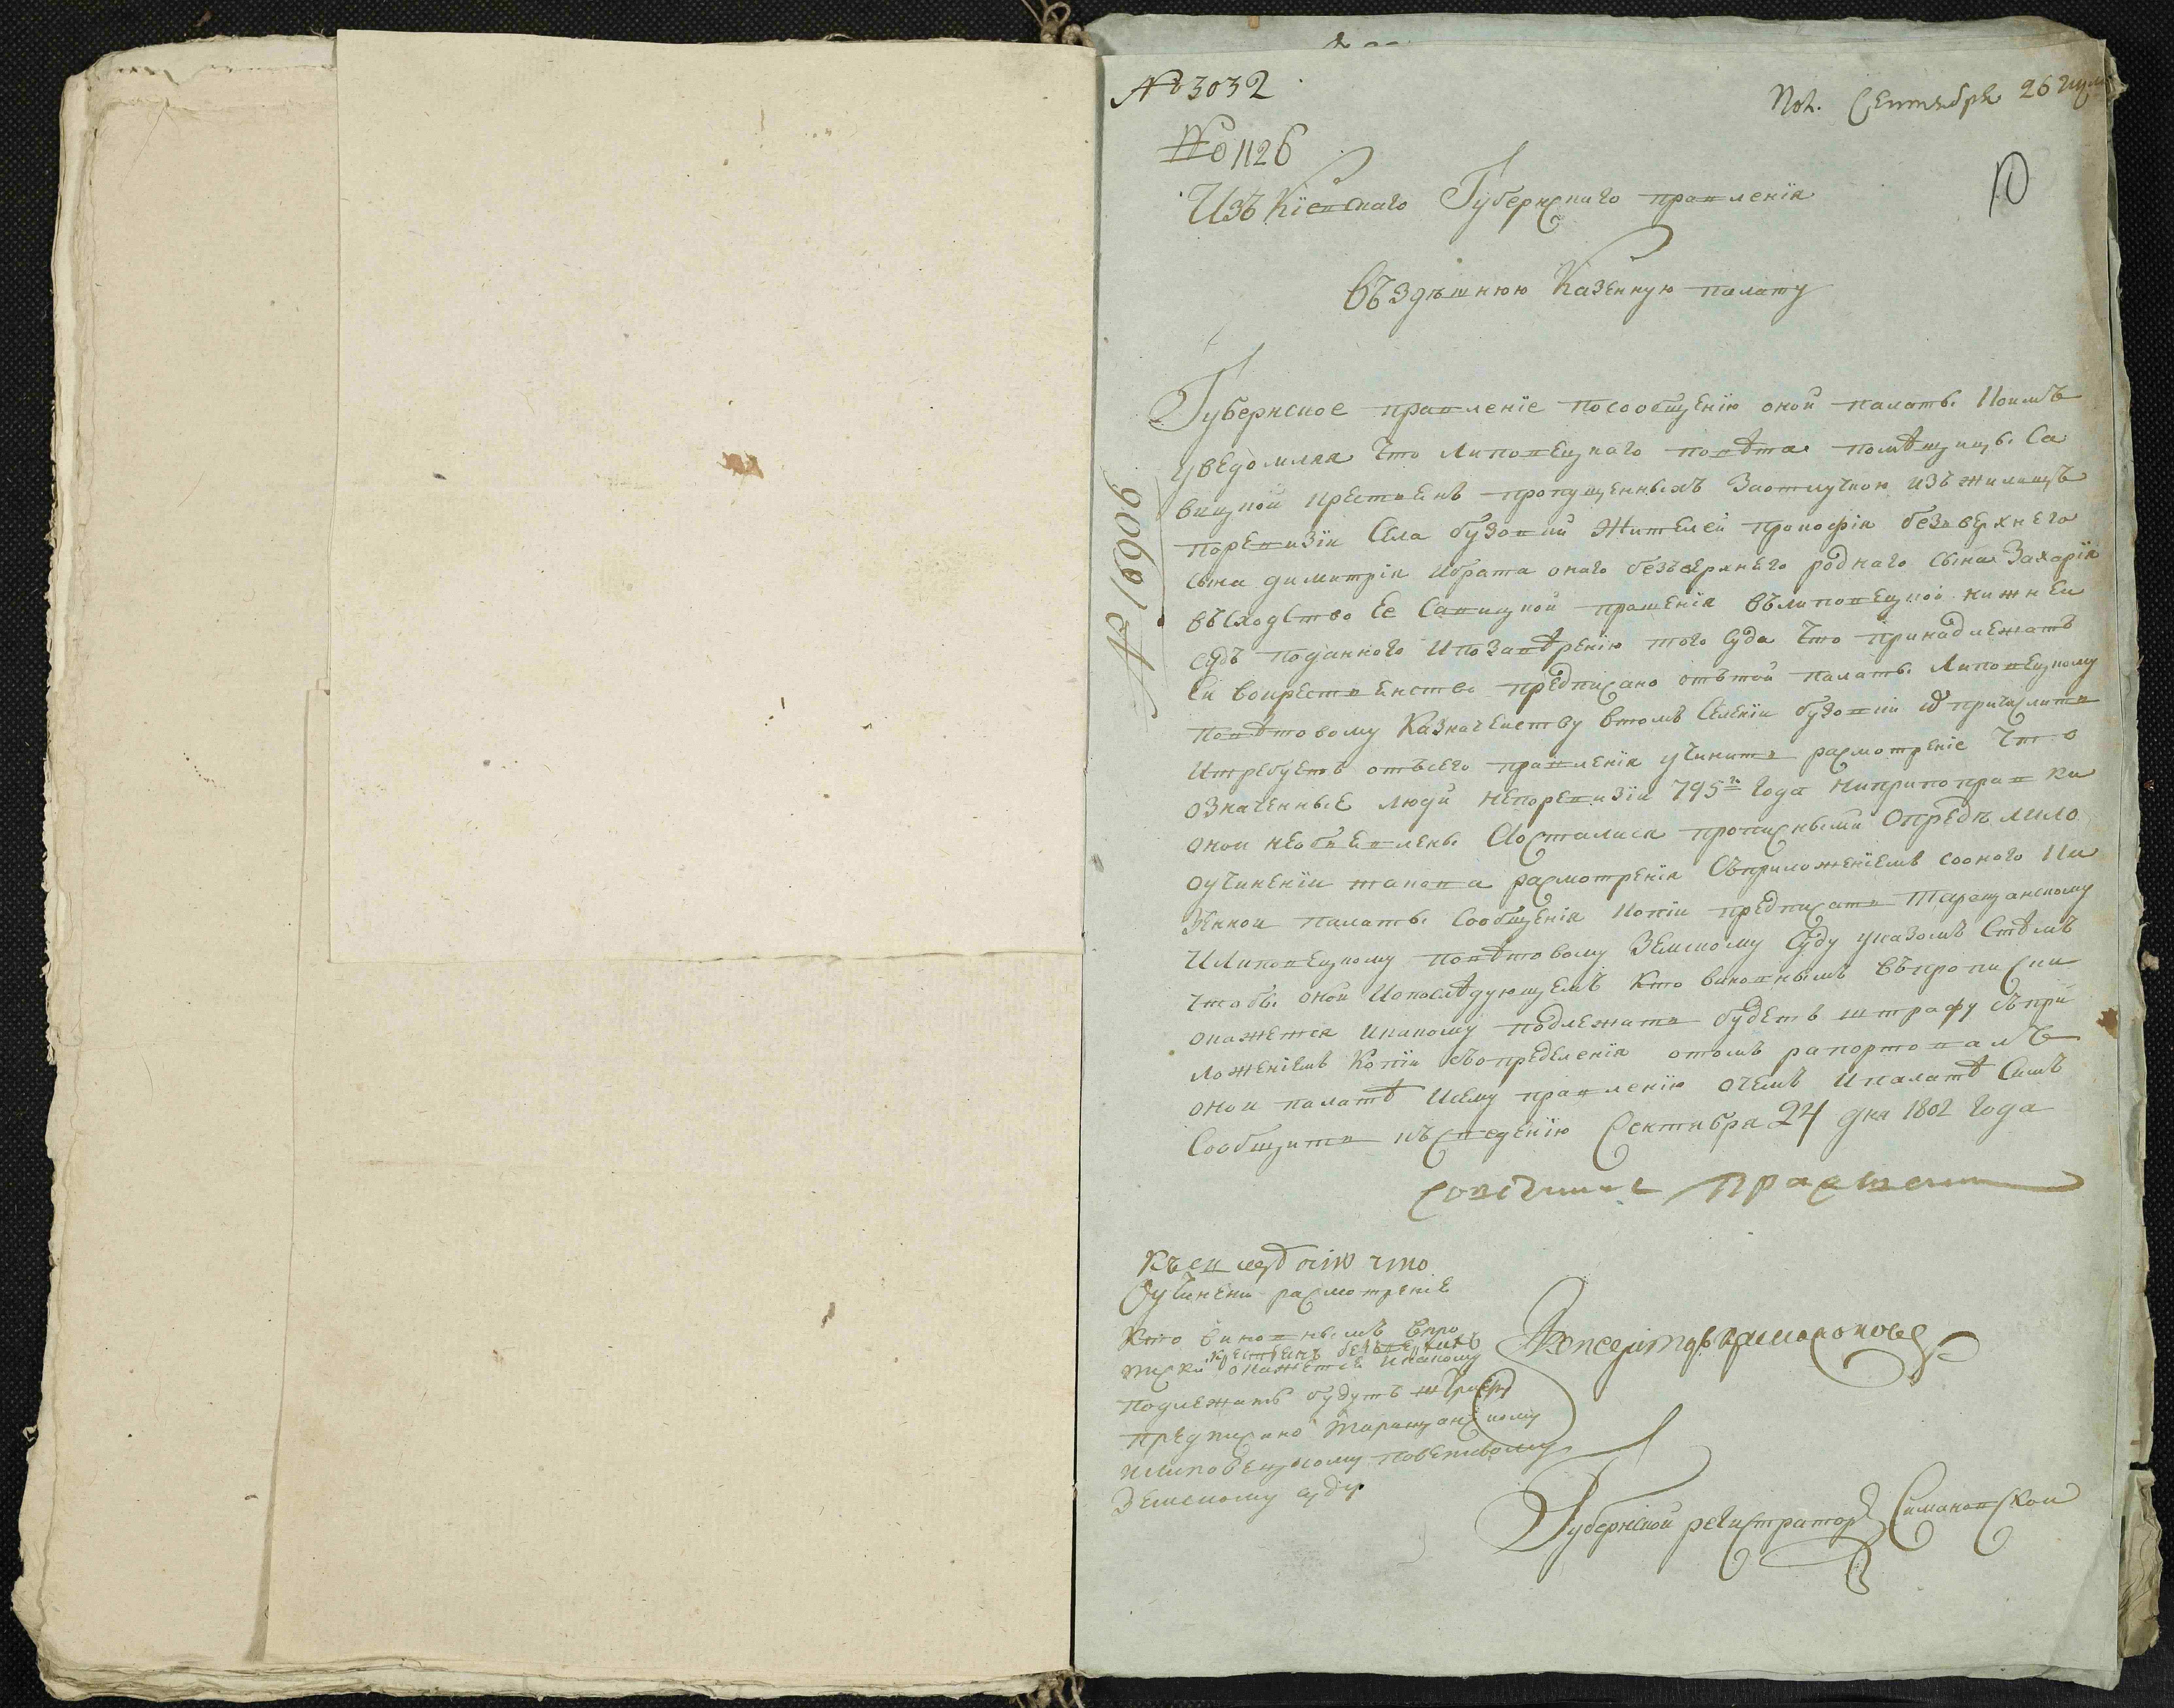 № 3032
Пол. Сентября 26 1802
№ 1126
10
Изъ Кіевскаго Губернскаго правленія
Въ здѣшнюю Казенную палату
№ 16906
Губернское правленіе посообщенію оной палаты коимъ
уведомляя что Липовецкаго повѣта помѣщицы Са
вицкой крестьянъ пропущенныхъ Заотлучкою изъ жилищъ
поревизіи Села бузовки Жителей прокофія безверхнего
сына димитрія ибрата онаго безверхнего роднаго сына Захарія
въсходство Ее Савицкой прошенія вълиповецкой нижней
судъ поданного ипозавѣренію того Суда что принадлежатъ
Ей вокрестьянство предписано отътой палаты Липовецкому
повѣтовому Казначейству втомъ Селеніи бузовки и причислить
итребуетъ отъсего правленія учинить расмотреніе что
означенные люди непоревизіи 795го года ниприпоправки
оной необъявлены Аосталися прописными Определило
оучиненіи таковаго расмотренія Съприложеніемъ соонаго Ка
зенной палаты Сообщенія копіи предписать таращанскому
ИЛиповецкому повѣтовому Земскому Суду указомъ Стѣмъ
чтобы оной Ипоследующемъ Кто виновнымъ въпрописки
окажется икакому подлежать будетъ штрафу съпри
ложеніемъ Копіи съопределенія отомъ рапортовалъ
оной палатѣ Исему правленію очемъ ипалатѣ Симъ
Сообщить късведенію Сентября 24 дня 1802 года
Советникъ
Къ сведенію что
Оучинени расмотреніе
Кто виновнымъ впро
писки крестьянъ окажется икакому
подлежатъ будутъ штрафу
предписано таращанскому
илиповецкому поветовому
Земскому суду
Секретарь
Губернской регистраторъ Симановской